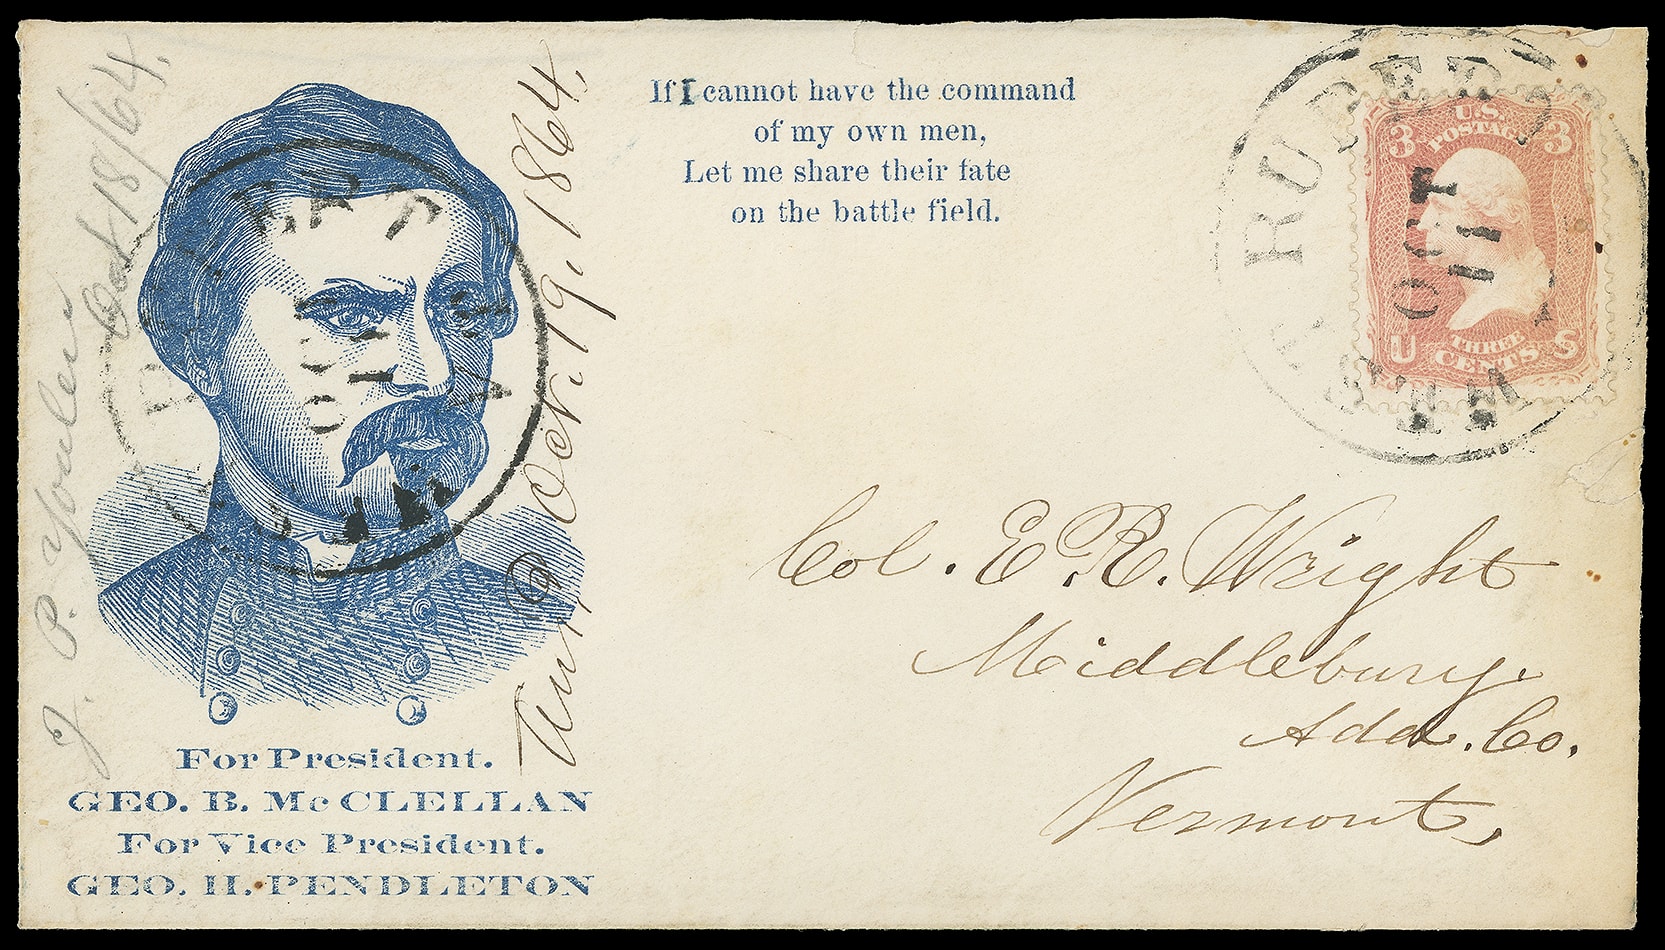 If I cannot have the command
of my own men,
Let me share their fate
on the battle field.
U.S.
POSTAGE
3 3
THREE
CENTS
U S
RUPERT
OCT
11
RUPERT
OCT
11
Col. E. R. Wright
Middlebury.
Add. Co.
Vermont,
J. P.
Oct 18/64.
Oct. 19, 1864,
For President.
GEO. B. McCLELLAN
For Vice President.
GEO. H. PENDLETON